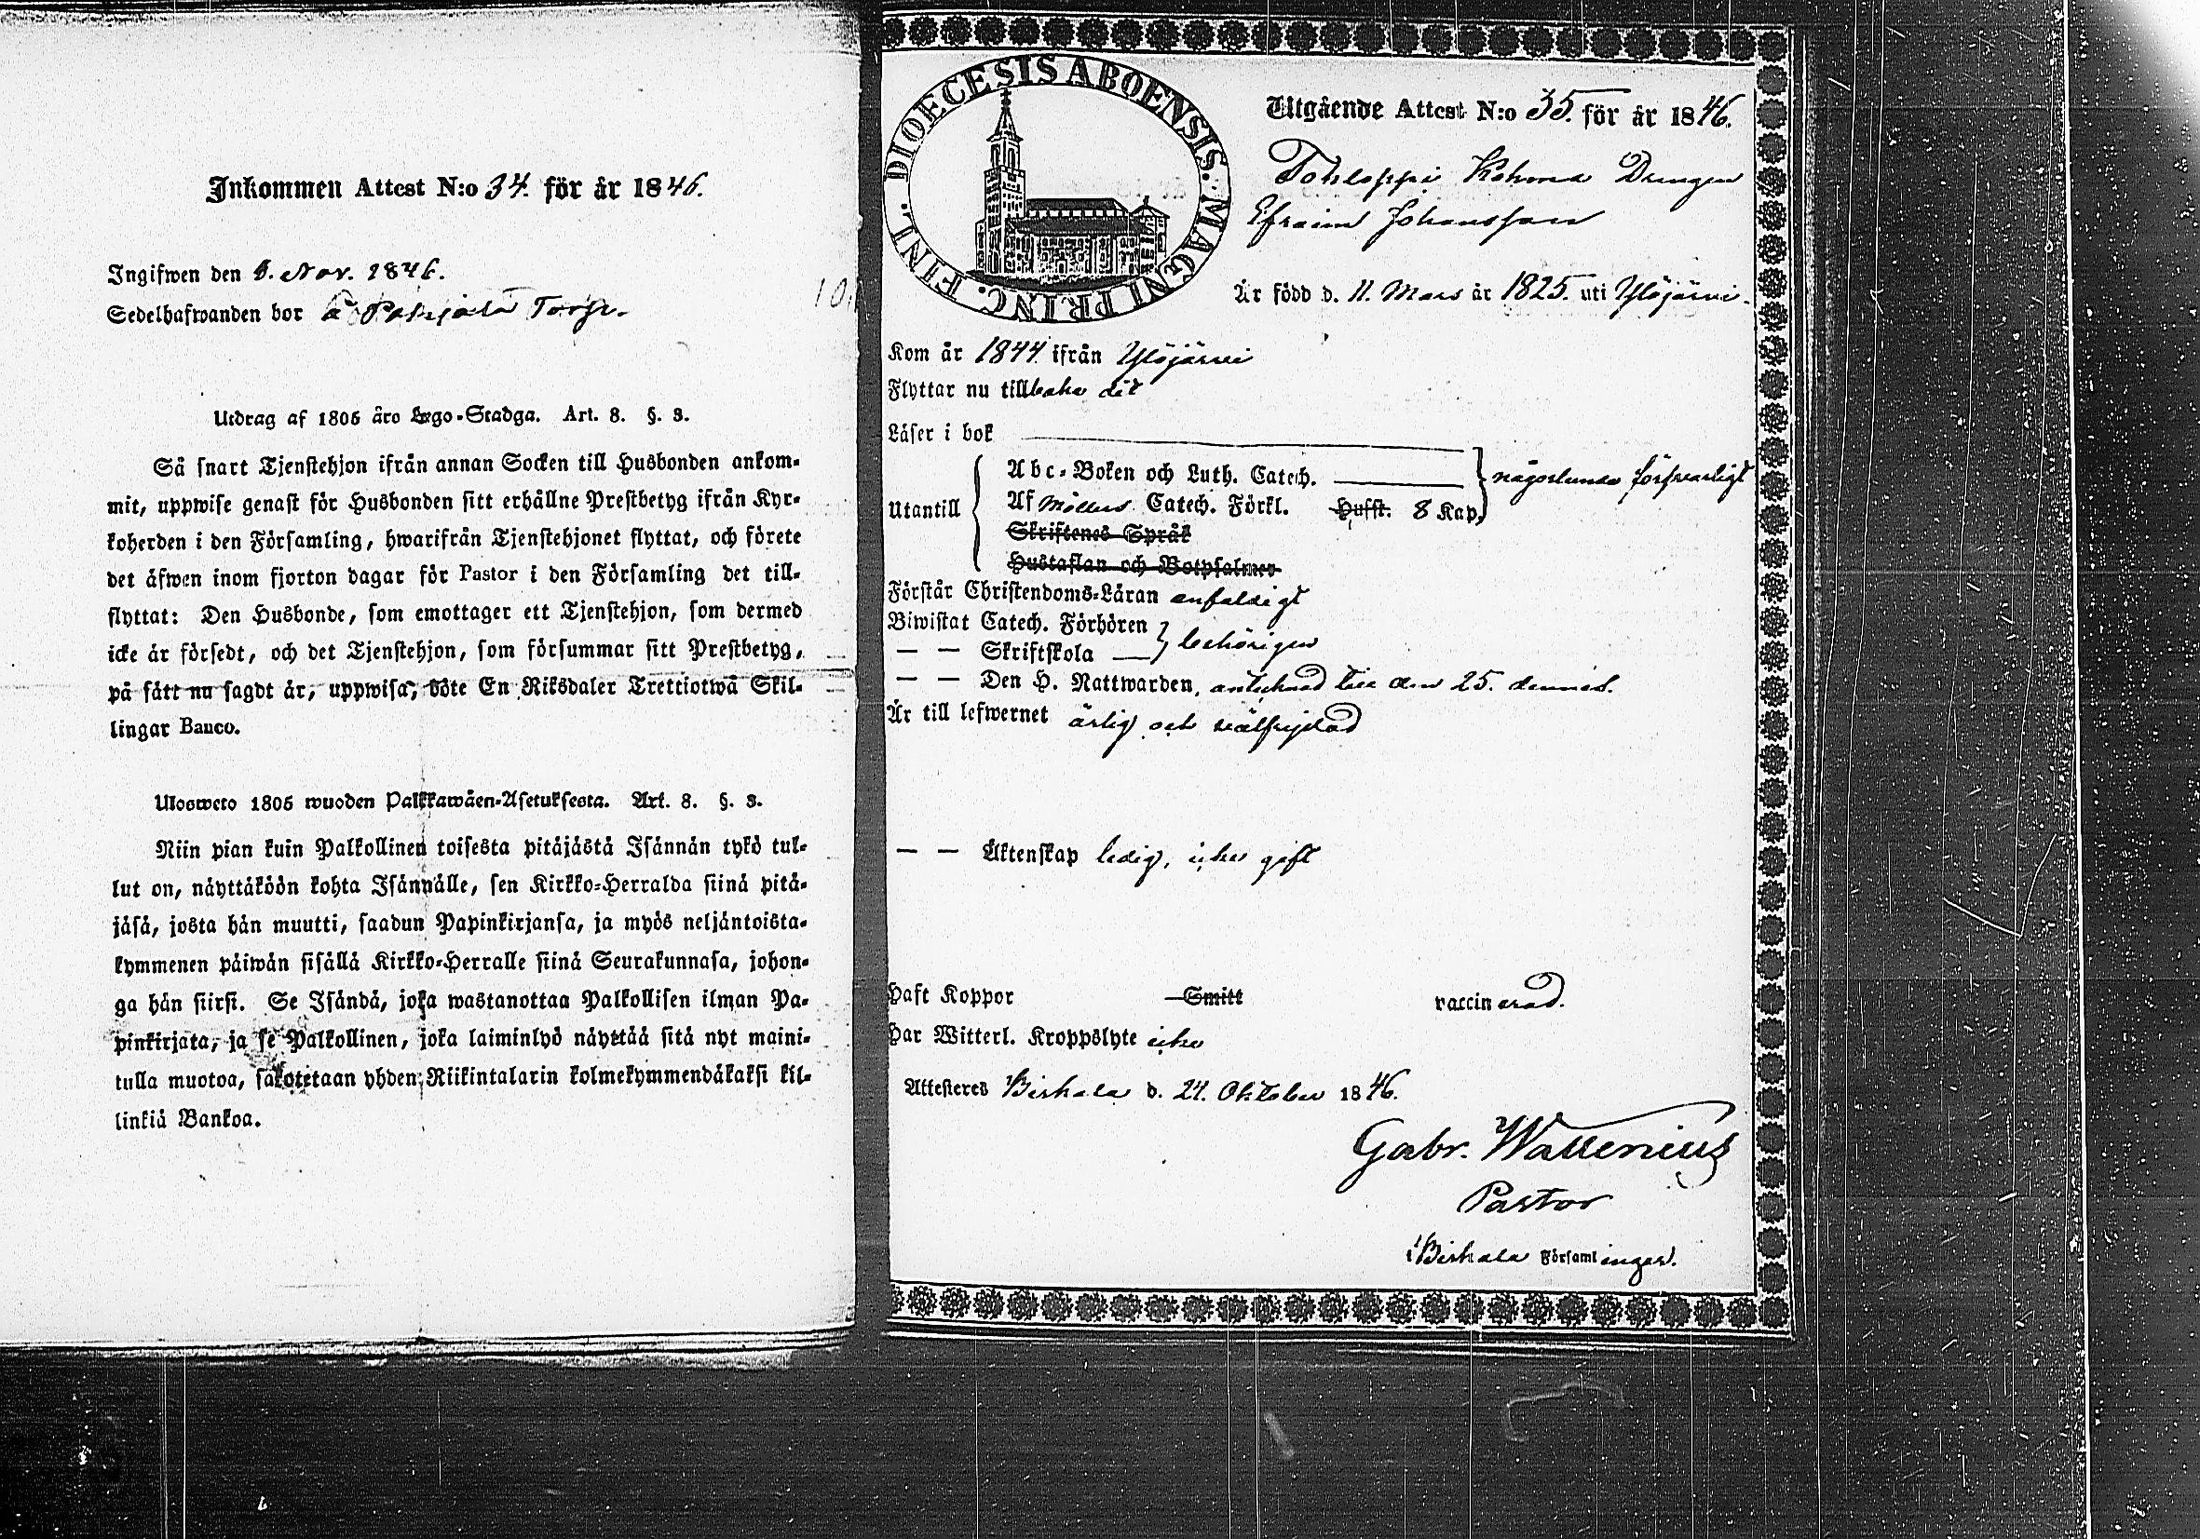 Inkommen Attest N:o 34. för år 1846.
Ingifwen den 8. Nov. 1846.
Sedelhafwanden bor å Pohjala Torp.
Utdrag af 1805 års Lego-Stadga. Art. 8. §. 3.
Så snart Tjenstehjon ifrån annan Socken till Husbonden ankom-
mit, uppwise genast för Husbonden sitt erhållne Prestbetyg ifrån Kyr-
koherden i den Församling, hwarifrån Tjenstehjonet flyttat, och förete
det äfwen inom fjorton dagar för Pastor i den Församling det till-
flyttat: Den Husbonde, som emottager ett Tjenstehjon, som dermed
icke är försedt, och det Tjenstehjon, som försummar sitt Prestbetyg,
på sätt nu sagdt är, uppwisa, böte En Riksdaler Trettiotwå Skil-
lingar Banco.
Ulosweto 1805 wuoden Palkkawäen-Asetuksesta. Art. 8. §. 3.
Niin pian kuin Palkollinen toisesta pitäjästä Isännän tykö tul-
lut on, näyttäköön kohta Isännälle, sen Kirkko-Herralda siinä pitä-
jäsä, josta hän muutti, saadun Papinkirjansa, ja myös neljäntoista-
kymmenen päiwän sisällä Kirkko-Herralle siinä Seurakunnasa, johon-
ga hän siirsi. Se Isändä, joka wastanottaa Palkollisen ilman Pa-
pinkirjata, ja se Palkollinen, joka laiminlyö näyttää sitä nyt maini-
tulla muotoa, sakotetaan yhden Riikintalarin kolmekymmendäkaksi kil-
linkiä Bankoa.
DIOECESIS ABOENSIS. MAGNI PRINC. FINL.
Utgående Attest N:o 35. för år 1846.
Tohloppi Kohma Drengen
Efraim Johansson
Är född d. 11. Mars år 1825. uti Ylöjärvi.
Kom år 1844 ifrån Ylöjärvi
Flyttar nu tillbaka dit
Läser i bok
Utantill
Abc-Boken och Luth. Catech.
någorlunda försvarligt
Af Möllers Catech. Förkl. Hufst. 8 Kap.
Skriftenes Språk
Hustaflan och Botpsalmer
Förstår Christendoms-Läran enfaldigt
Biwistat Catech. Förhören
— — Skriftskola — behörigen
— — Den H. Nattwarden, antecknad till den 25. dennes.
Är till lefwernet ärlig och välfrejdad
— — Äktenskap ledig, icke gift
Haft Koppor Smitt vaccinerad.
Har Witterl. Kroppslyte icke
Attesteres Birkala d. 24. Oktober 1846.
Gabr. Wallenius
Pastor
i Birkala Församlingar.